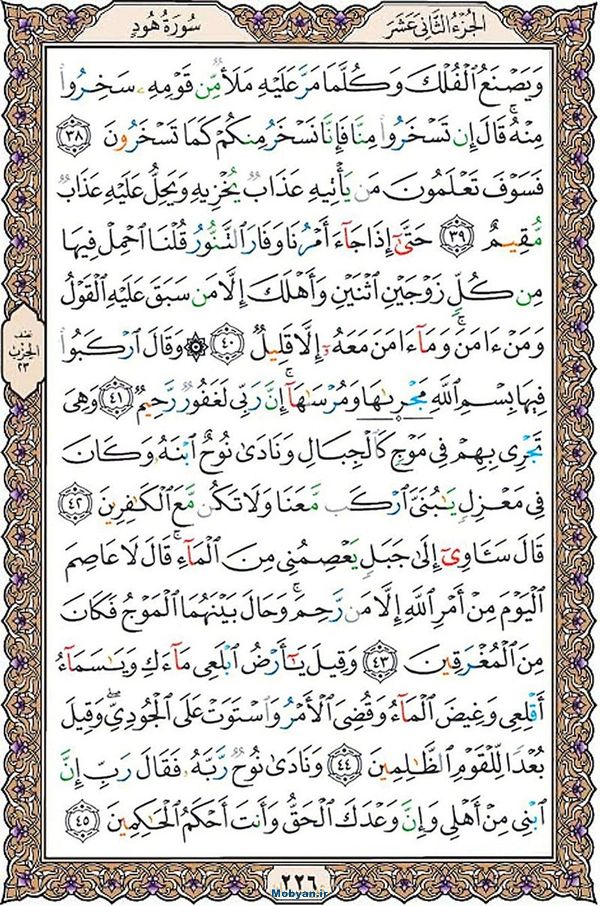 الجُزْءُ الثَّانِيَ عَشَرَ
سُورَةُ هُودٍ
وَيَصْنَعُ ٱلْفُلْكَ وَكُلَّمَا مَرَّ عَلَيْهِ مَلَأٌ مِّن قَوْمِهِۦ سَخِرُوا۟
مِنْهُ ۚ قَالَ إِن تَسْخَرُوا۟ مِنَّا فَإِنَّا نَسْخَرُ مِنكُمْ كَمَا تَسْخَرُونَ ﴿٣٨﴾
فَسَوْفَ تَعْلَمُونَ مَن يَأْتِيهِ عَذَابٌ يُخْزِيهِ وَيَحِلُّ عَلَيْهِ عَذَابٌ
مُّقِيمٌ ﴿٣٩﴾ حَتَّىٰٓ إِذَا جَآءَ أَمْرُنَا وَفَارَ ٱلتَّنُّورُ قُلْنَا ٱحْمِلْ فِيهَا
مِن كُلٍّ زَوْجَيْنِ ٱثْنَيْنِ وَأَهْلَكَ إِلَّا مَن سَبَقَ عَلَيْهِ ٱلْقَوْلُ
وَمَنْ ءَامَنَ ۚ وَمَآ ءَامَنَ مَعَهُۥٓ إِلَّا قَلِيلٌ ﴿٤٠﴾ ۞ وَقَالَ ٱرْكَبُوا۟
فِيهَا بِسْمِ ٱللَّهِ مَجْر۪ىٰهَا وَمُرْسَىٰهَآ ۚ إِنَّ رَبِّى لَغَفُورٌ رَّحِيمٌ ﴿٤١﴾ وَهِىَ
تَجْرِى بِهِمْ فِى مَوْجٍ كَٱلْجِبَالِ وَنَادَىٰ نُوحٌ ٱبْنَهُۥ وَكَانَ
فِى مَعْزِلٍ يَٰبُنَىَّ ٱرْكَب مَّعَنَا وَلَا تَكُن مَّعَ ٱلْكَٰفِرِينَ ﴿٤٢﴾
قَالَ سَـَٔاوِىٓ إِلَىٰ جَبَلٍ يَعْصِمُنِى مِنَ ٱلْمَآءِ ۚ قَالَ لَا عَاصِمَ
ٱلْيَوْمَ مِنْ أَمْرِ ٱللَّهِ إِلَّا مَن رَّحِمَ ۚ وَحَالَ بَيْنَهُمَا ٱلْمَوْجُ فَكَانَ
مِنَ ٱلْمُغْرَقِينَ ﴿٤٣﴾ وَقِيلَ يَٰٓأَرْضُ ٱبْلَعِى مَآءَكِ وَيَٰسَمَآءُ
أَقْلِعِى وَغِيضَ ٱلْمَآءُ وَقُضِىَ ٱلْأَمْرُ وَٱسْتَوَتْ عَلَى ٱلْجُودِىِّ ۖ وَقِيلَ
بُعْدًا لِّلْقَوْمِ ٱلظَّٰلِمِينَ ﴿٤٤﴾ وَنَادَىٰ نُوحٌ رَّبَّهُۥ فَقَالَ رَبِّ إِنَّ
ٱبْنِى مِنْ أَهْلِى وَإِنَّ وَعْدَكَ ٱلْحَقُّ وَأَنتَ أَحْكَمُ ٱلْحَٰكِمِينَ ﴿٤٥﴾
نصف
الحزب
٢٣
٢٢٦
Mobyan.ir